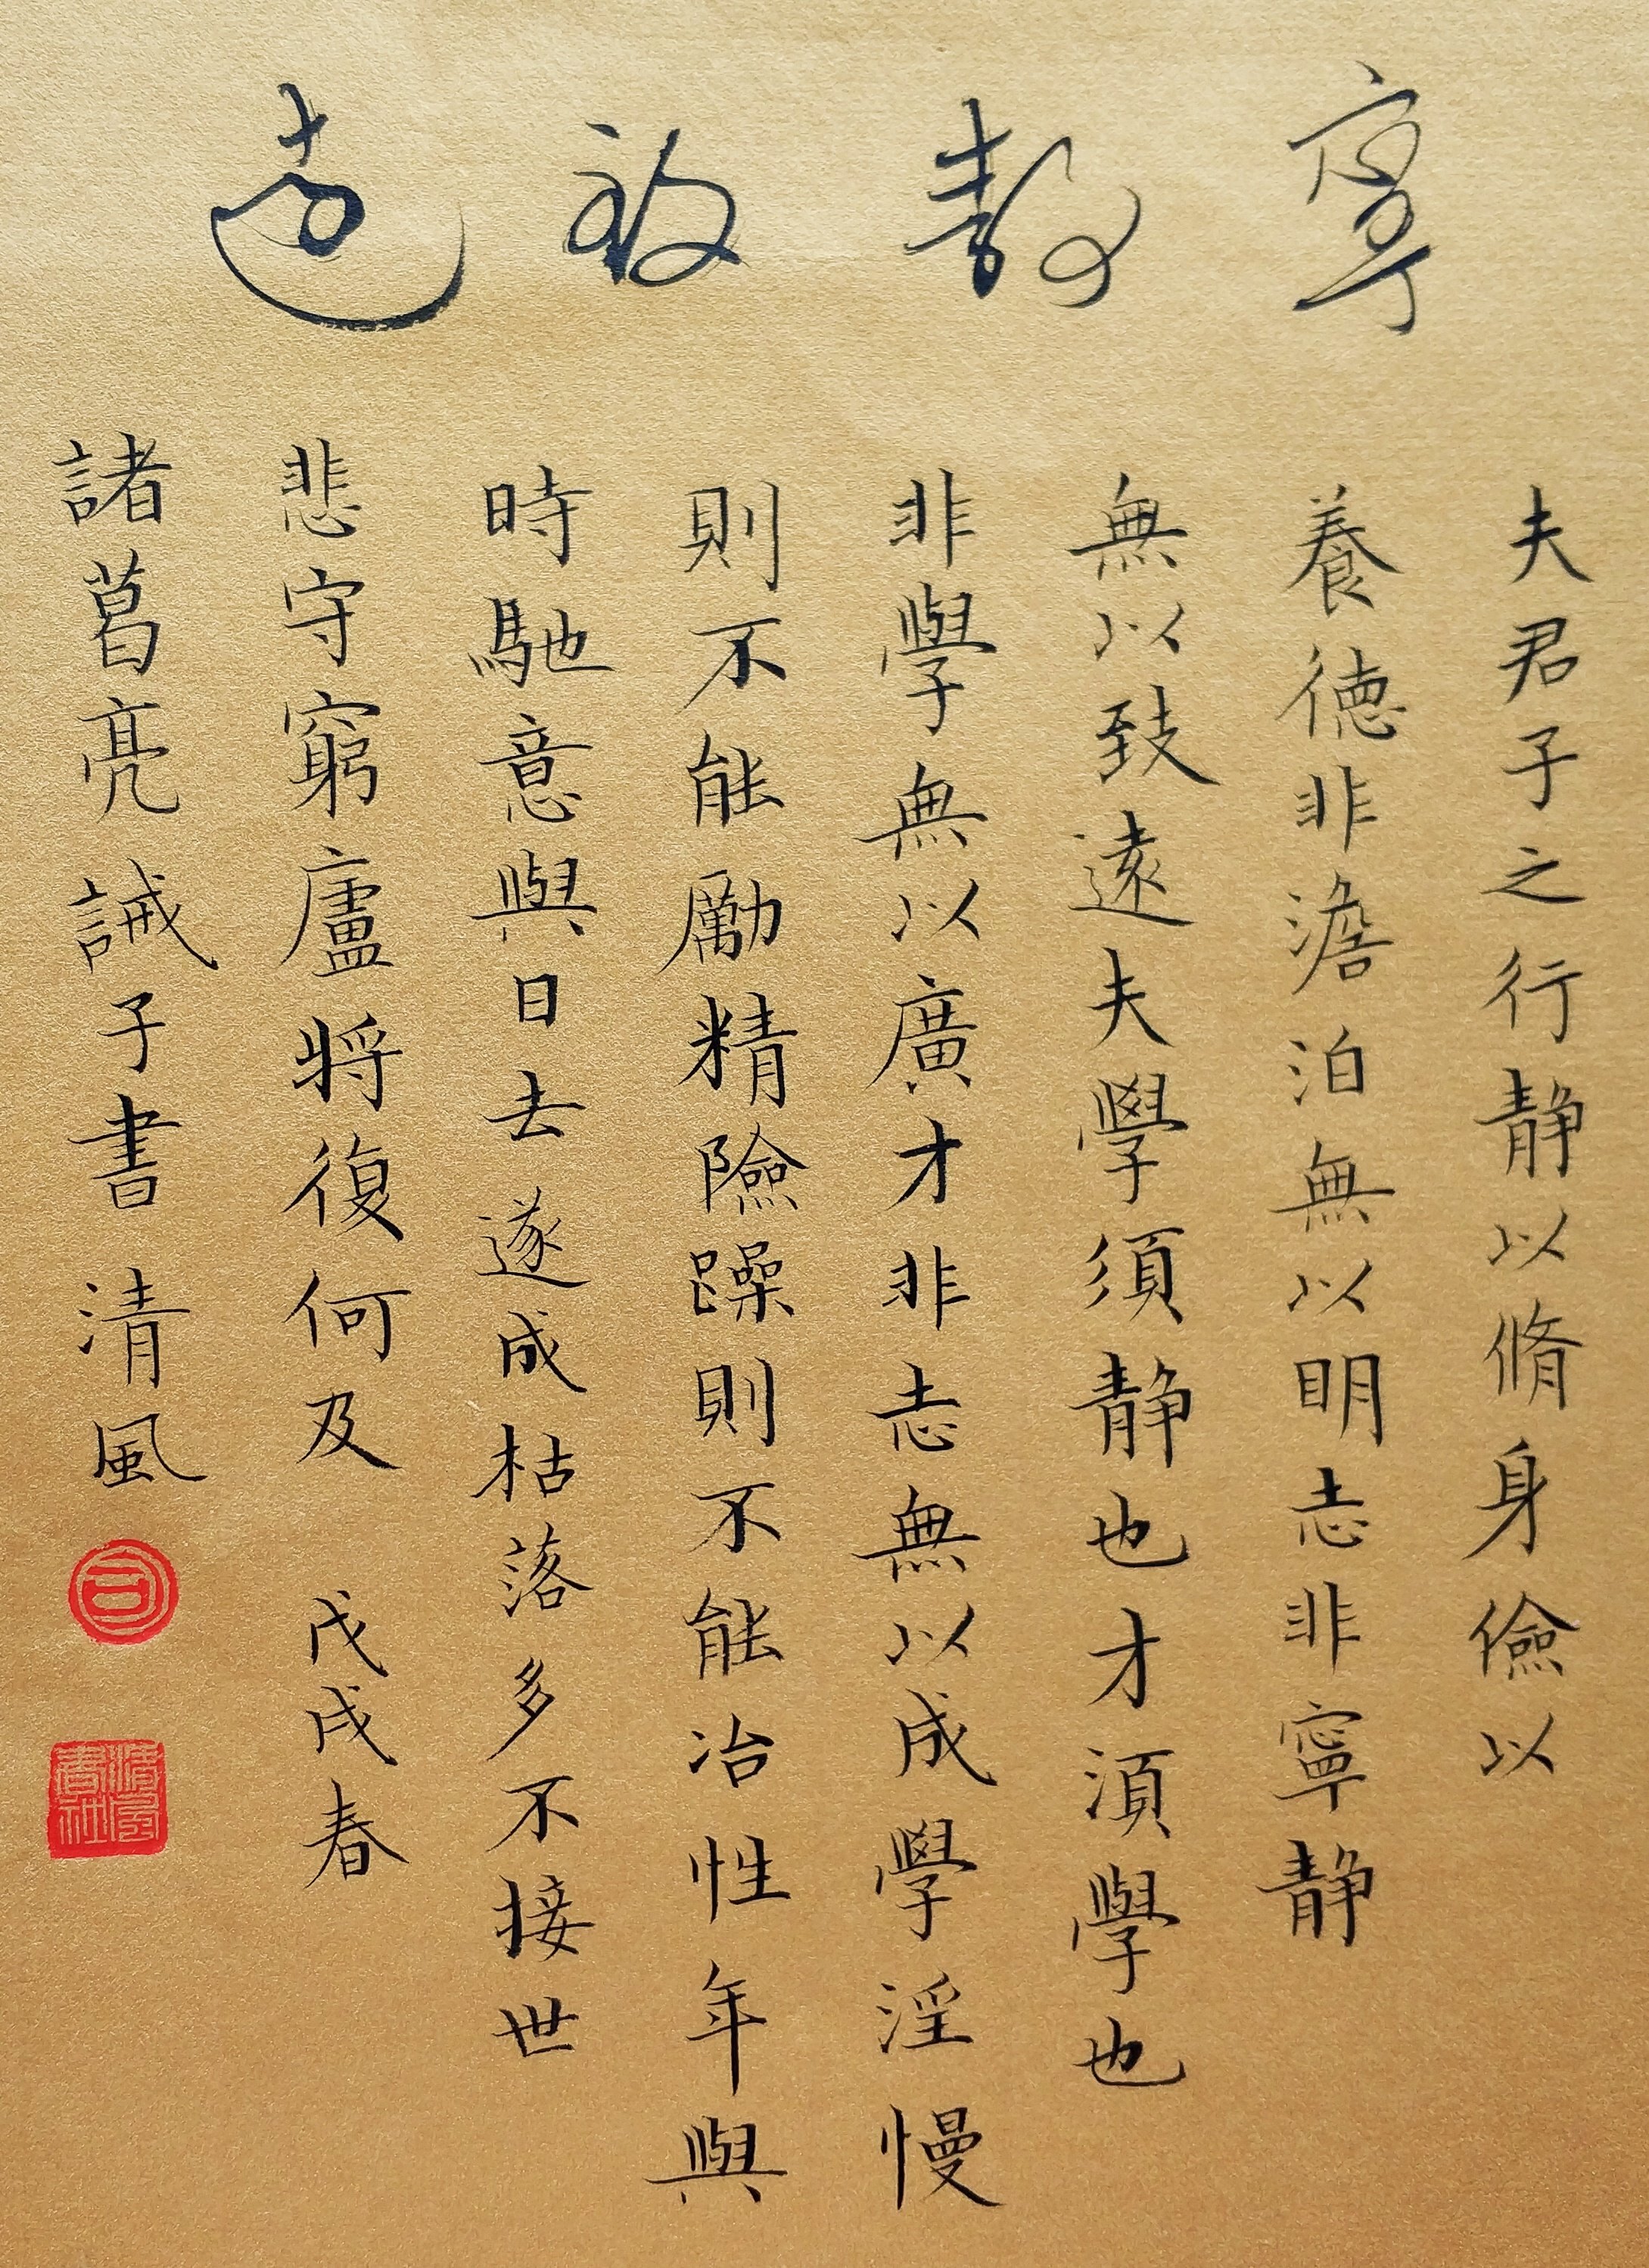 寧静致遠
夫君子之行静以脩身儉以
養德非澹泊無以明志非寧静
無以致遠夫學須静也才須學也
非學無以廣才非志無以成學淫慢
則不能勵精險躁則不能冶性年與
時馳意與日去遂成枯落多不接世
悲守窮廬將復何及 戊戌春
諸葛亮誡子書 清風